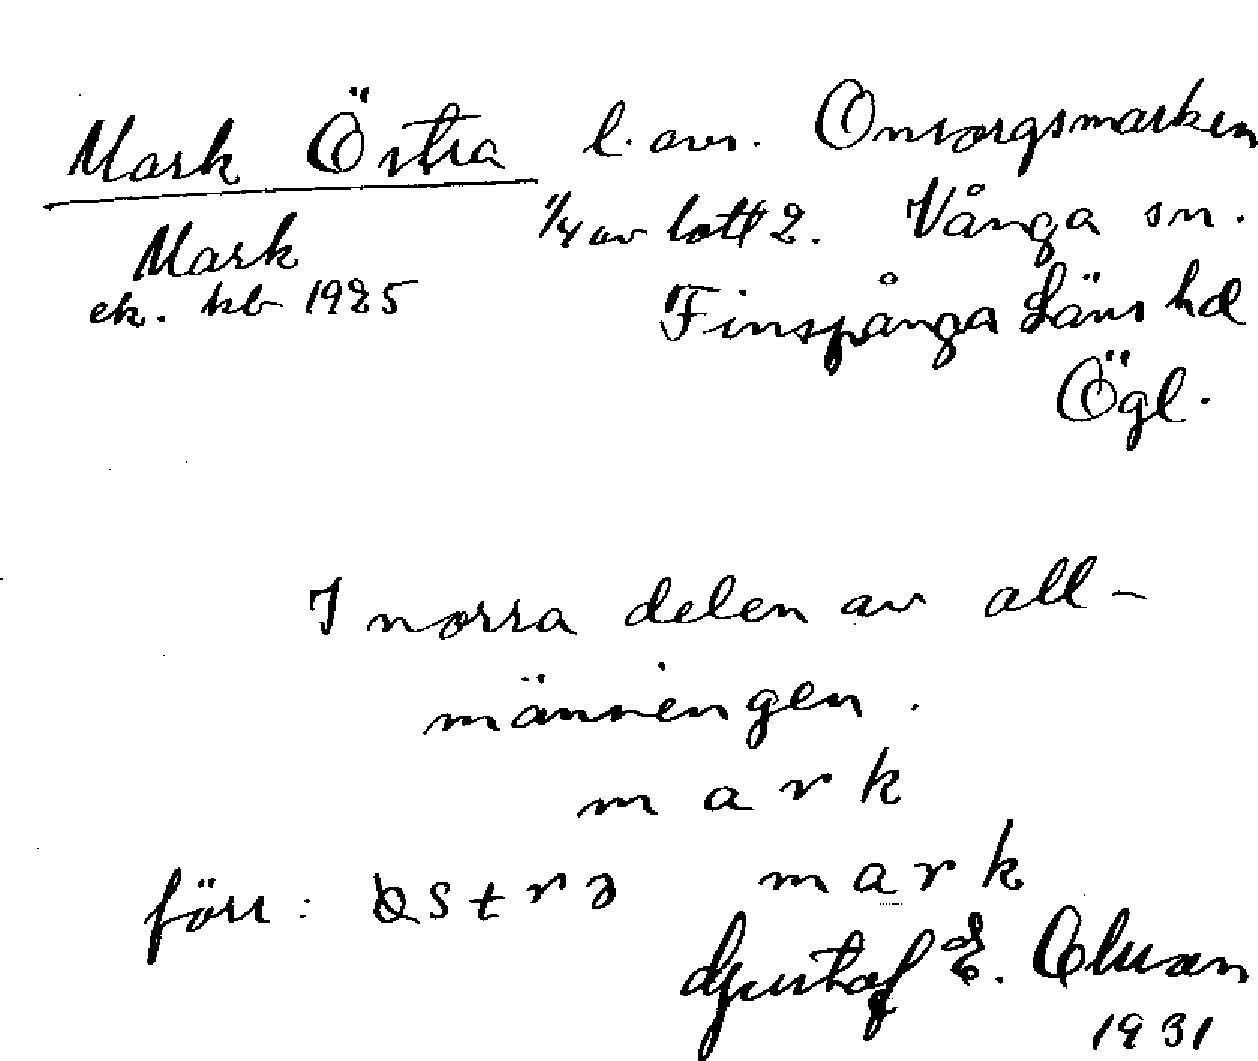 Mark Östra l. avs. Onsorgsmarken
Mark 1/4 av lott 2. Vånga sn.
ek. kb 1925 Finspånga Läns hd
Ögl.
I norra delen av all-
männingen.
mark
förr: östrə mark
Gustaf E. Olsson
1931